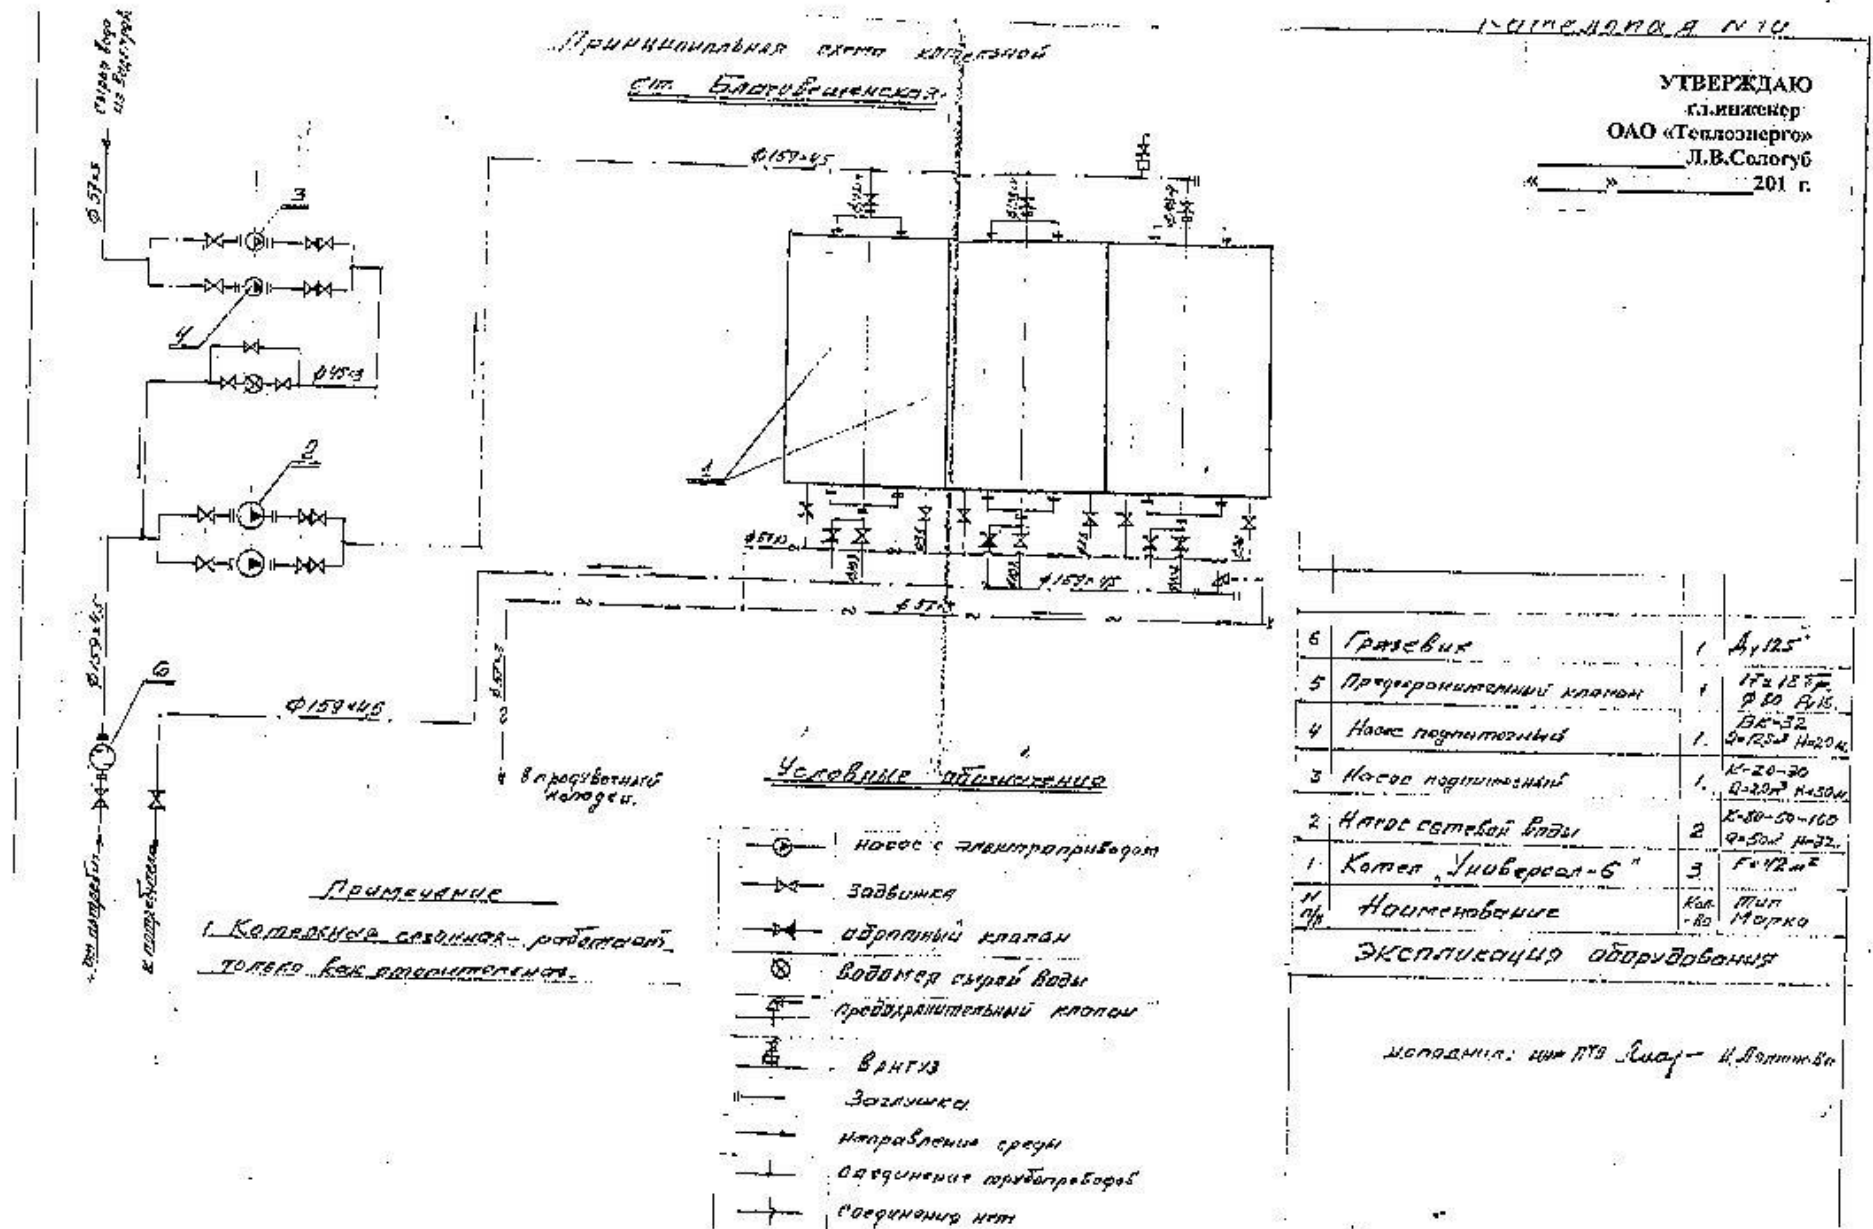 Котельная N10
Принципиальная схема котельной
ст. Благовещенская
УТВЕРЖДАЮ
гл.инженер
ОАО «Теплоэнерго»
Л.В.Сологуб
«____»____________201 г.
сырая вода
из водопров.
ф57×3
3
4
ф45×3
2
ф159×4,5
6
ф159×4,5
от потребит.
к потребителю
ф159×4,5
1
ф57×3
ф159×4,5
ф57×3
ф57×3
в продувочный
колодец.
Примечание
1. Котельная сезонная - работает
только как отопительная.
Условные обозначения
насос с электроприводом
задвижка
обратный клапан
водомер сырой воды
предохранительный клапан
вантуз
Заглушка
направление среды
соединение трубопроводов
соединения нет
6 Грязевик 1 Ду125
5 Предохранительный клапан 1 17с18
4 Насос подпиточный 1. ВК-32 H=20м.
3 Насос подпиточный 1. К-20-30 Q=20м³ H=30м
2 Насос сетевой воды 2 К-80-50-160 Q=50м³ H=32.
1 Котел „Универсал-6" 3 F=42м²
N п/п Наименование Кол-во Тип Марка
Экспликация оборудования
исполнил: инж ПТО